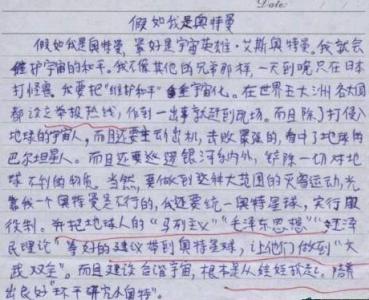 Date:
假如我是奥特曼
假如我是奥特曼，最好是宇宙英雄·艾斯奥特曼。我就会
维护宇宙的和平。我不像其他的兄弟那样，一天到晚只在日本
打怪兽，我要把“维护和平”宇宙化。在世界五大洲各大国
都设立举报热线，做到一出事就赶到现场。而且除了打侵入
地球的宇宙人，而且还要主动出机，击败嚣张的，看中了地球的
巴尔坦星人。而且还要巡逻银河系内外，铲除一切对地
球不利的物质。当然，要做到这种大范围的灾害运动，光
靠我一个奥特曼是不行的，我还要统一奥特星球，实行服
役制。并把地球人的“马列主义”“毛泽东思想”“江泽
民理论”等好的建议带到奥特星球，让他们做到“文
武双全”。而且建设合谐宇宙，根本是从娃娃抓起，培养
出良好“环干研究小奥特”。